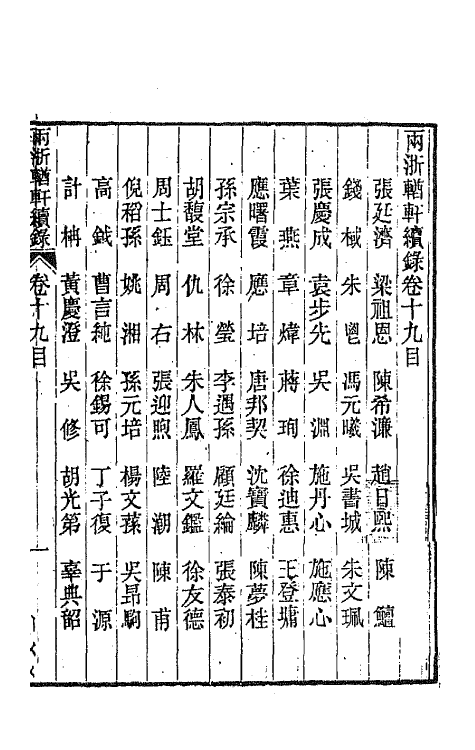 兩浙輶軒續錄卷十九目
張廷濟 梁祖恩 陳希濂 趙日熙 陳鱣
錢棫 朱鬯 馮元曦 吳書城 朱文珮
張慶成 袁步先 吳淵 施丹心 施應心
葉燕 章煒 蔣珣 徐迪惠 王登墉
應曙霞 應培 唐邦契 沈寶麟 陳夢桂
孫宗承 徐瑩 李遇孫 顧廷綸 張泰初
胡馥堂 仇林 朱人鳳 羅文鑑 徐友德
周士鈺 周右 張迎煦 陸潮 陳甫
倪稻孫 姚湘 孫元培 楊文蓀 吳昂駒
高鉞 曹言純 徐錫可 丁子復 于源
計楠 黃慶澄 吳修 胡光第 辜典韶
兩浙輶軒續錄 卷十九目 一